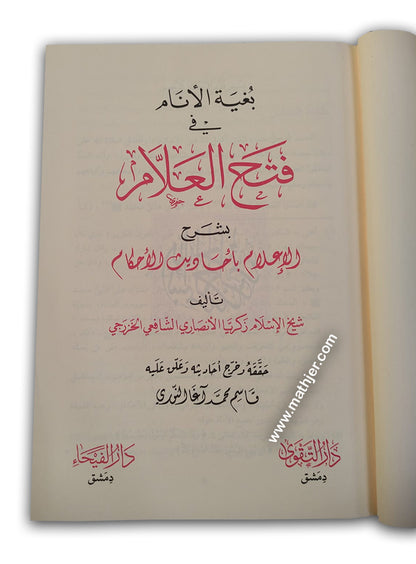 بغية الأنام
في
فتح العلام
بشرح
الإعلام بأحاديث الأحكام
تأليف
شيخ الإسلام زكريا الأنصاري الشافعي الخزرجي
حققه وخرج أحاديثه وعلق عليه
قاسم محمد آغا النوري
دار التقوى
دمشق
دار الفيحاء
دمشق
www.mathjer.com